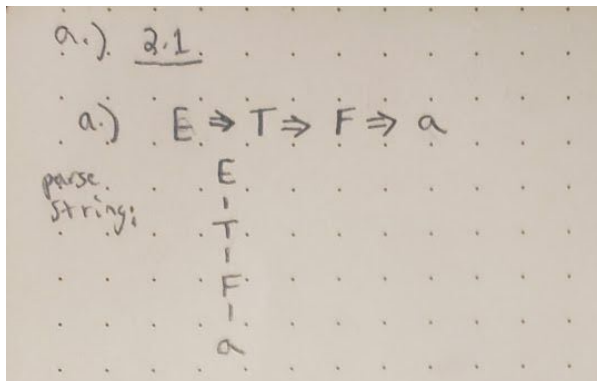 a.) 2.1
a.) E ⇒ T ⇒ F ⇒ a
parse
string:
E
T
F
a